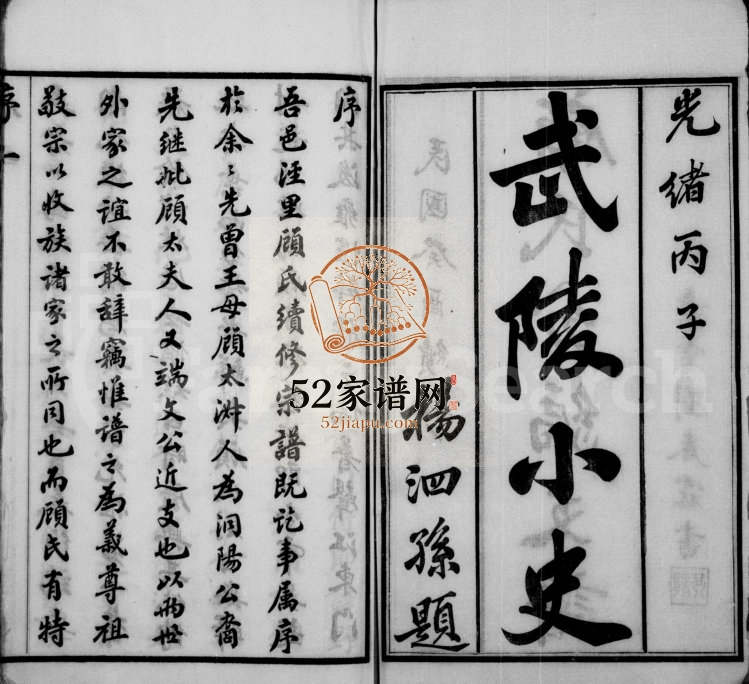 光緒丙子
武陵小史
楊泗孫題
序
吾邑涇里顧氏續修宗譜既訖事属序
於余〻先曾王母顧太淑人為洞陽公裔
先继妣顧太夫人又端文公近支也以两世
外家之誼不敢辭竊惟譜之為義尊祖
敬宗以收族諸家之所同也而顧氏有特
序一
52家谱网
52jiapu.com